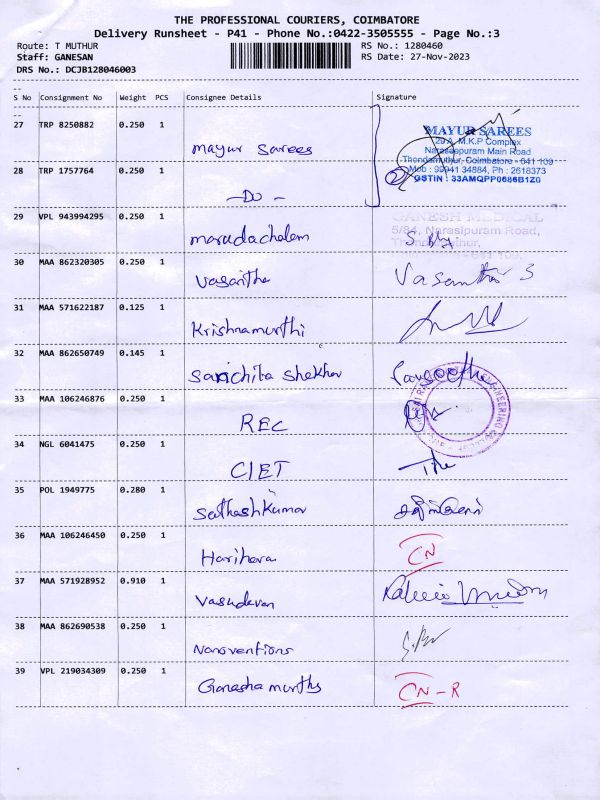 THE PROFESSIONAL COURIERS, COIMBATORE
Delivery Runsheet - P41 - Phone No.:0422-3505555 - Page No.:3
Route: T MUTHUR RS No.: 1280460
Staff: GANESAN RS Date: 27-Nov-2023
DRS No.: DCJB128046003
S No Consignment No Weight PCS Consignee Details Signature
27 TRP 8250882 0.250 1 Mayur Sarees
MAYUR SAREES
29 A, M.K.P Complex
Naraseepuram Main Road
Thondamuthur, Coimbatore - 641 109
Mob : 99941 34884, Ph : 2618373
GSTIN : 33AMQPP0686B1Z0
28 TRP 1757764 0.250 1 -DO-
GANESH MEDICAL
5/84, Narasipuram Road,
29 VPL 943994295 0.250 1 marudachalam
30 MAA 862320305 0.250 1 Vasantha Vasantha S
31 MAA 571622187 0.125 1 Krishnamurthi
32 MAA 862650749 0.145 1 Sanchita Shekhar
33 MAA 106246876 0.250 1 REC
34 NGL 6041475 0.250 1 CIET
35 POL 1949775 0.280 1 Sathashkumar
36 MAA 106246450 0.250 1 Harihara CN
37 MAA 571928952 0.910 1 Vasudevan
38 MAA 862690538 0.250 1 Nanoventions
39 VPL 219034309 0.250 1 Ganesha murthy CN-R